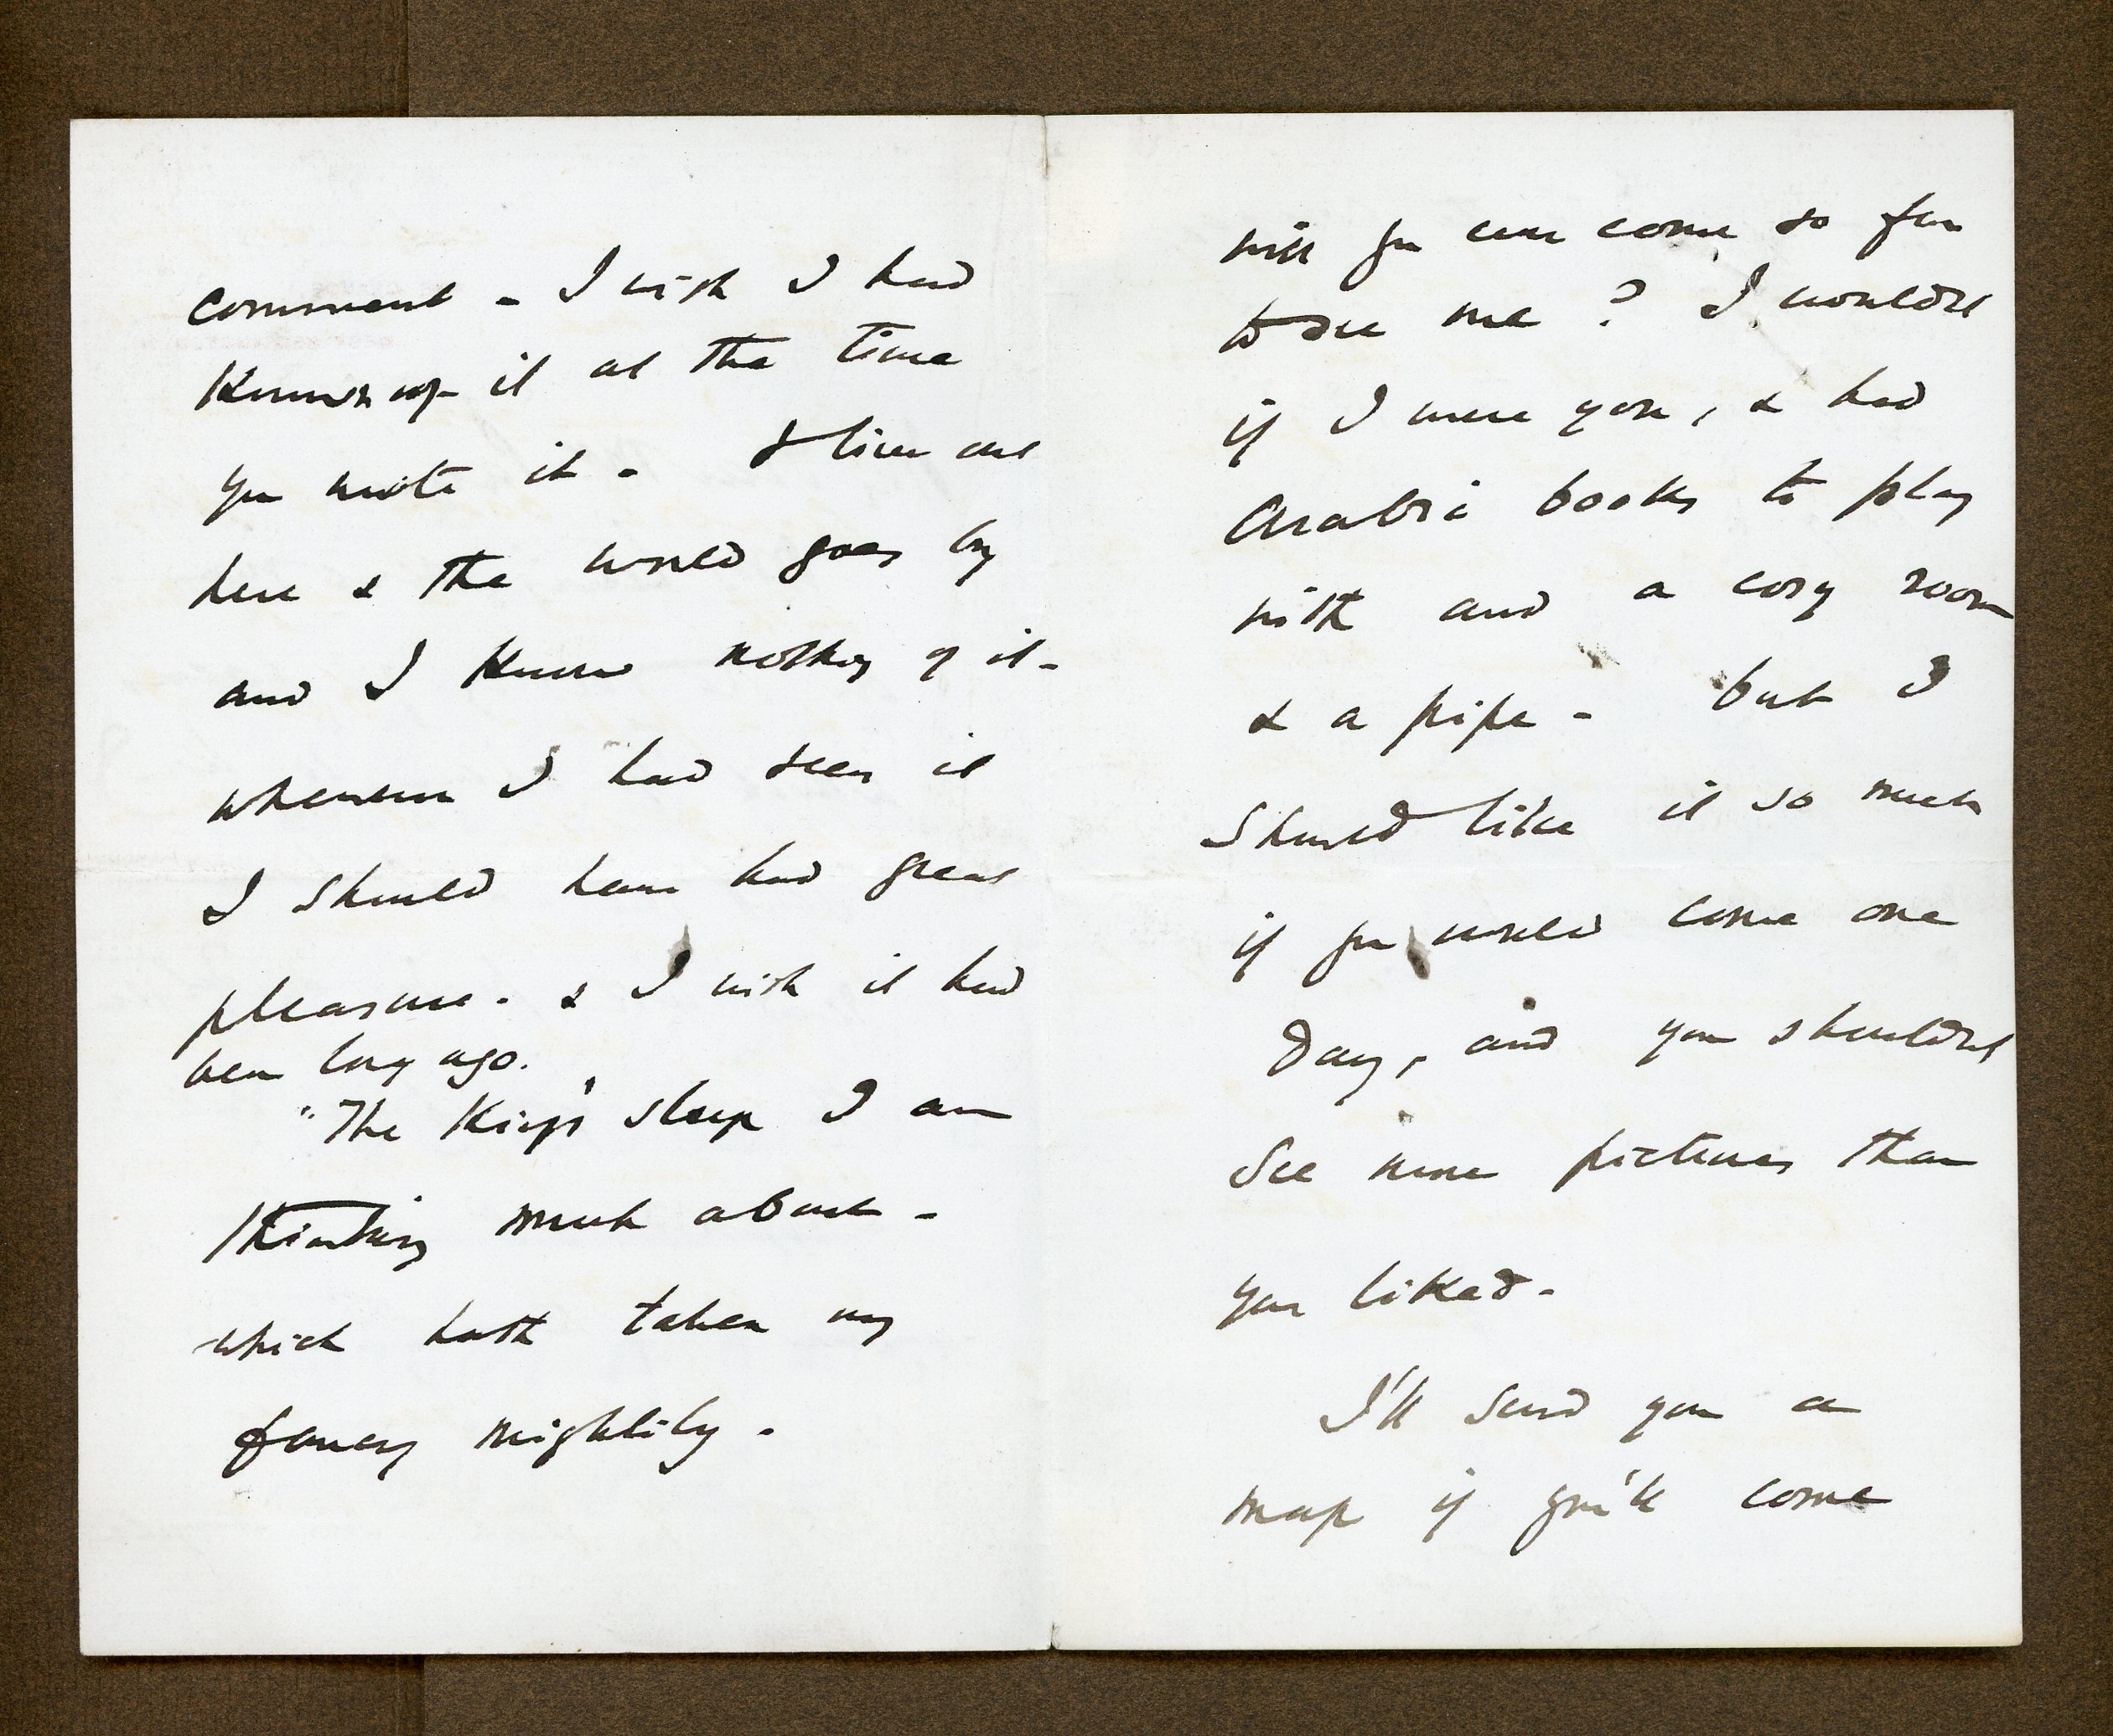 comment - I wish I had
known of it at the time
you wrote it - I live out
here & the world goes by
and I know nothing of it -
whenever I had seen it
I should have had great
pleasure - & I wish it had
been long ago.
"The King's sleep I am
thinking much about -
which hath taken my
fancy mightily -
will you ever come so far
to see me ? I wouldnt
if I were you, & had
Arabic books to play
with and a cosy room
& a pipe - but I
should like it so much
if you would come one
day, and you shouldnt
see more pictures than
you liked -
I'll send you a
map if you'll come